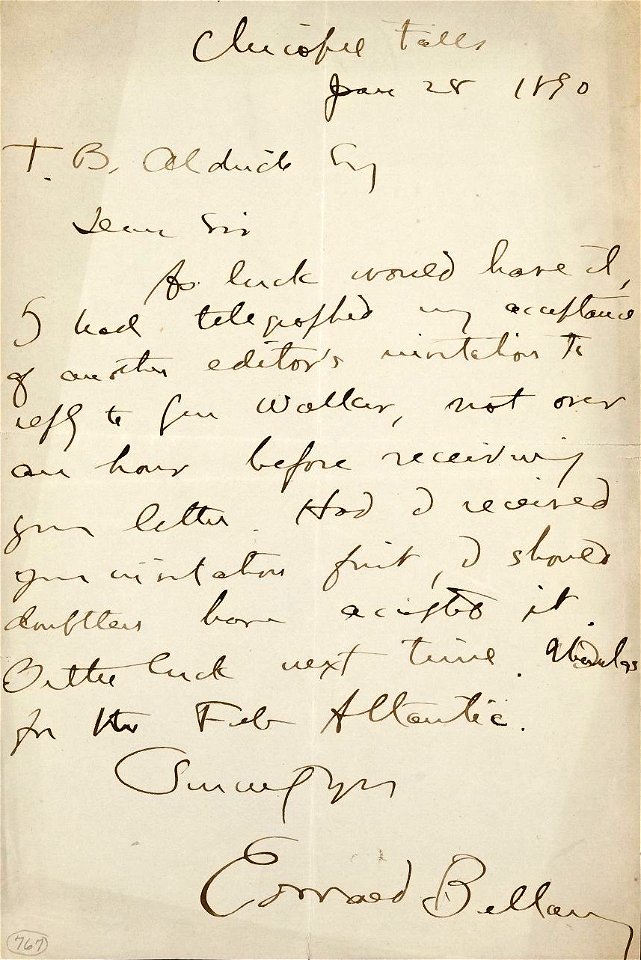 Chicopee Falls
Jan 28 1890
T. B. Aldrich Esq
Dear Sir
As luck would have it,
I had telegraphed my acceptance
of another editor's invitation to
reply to Gen Walker, not over
an hour before receiving
your letter. Had I received
your invitation first, I should
doubtless have accepted it.
Better luck next time.
for the Feb Atlantic.
Sincerely yrs
Edward Bellamy
767